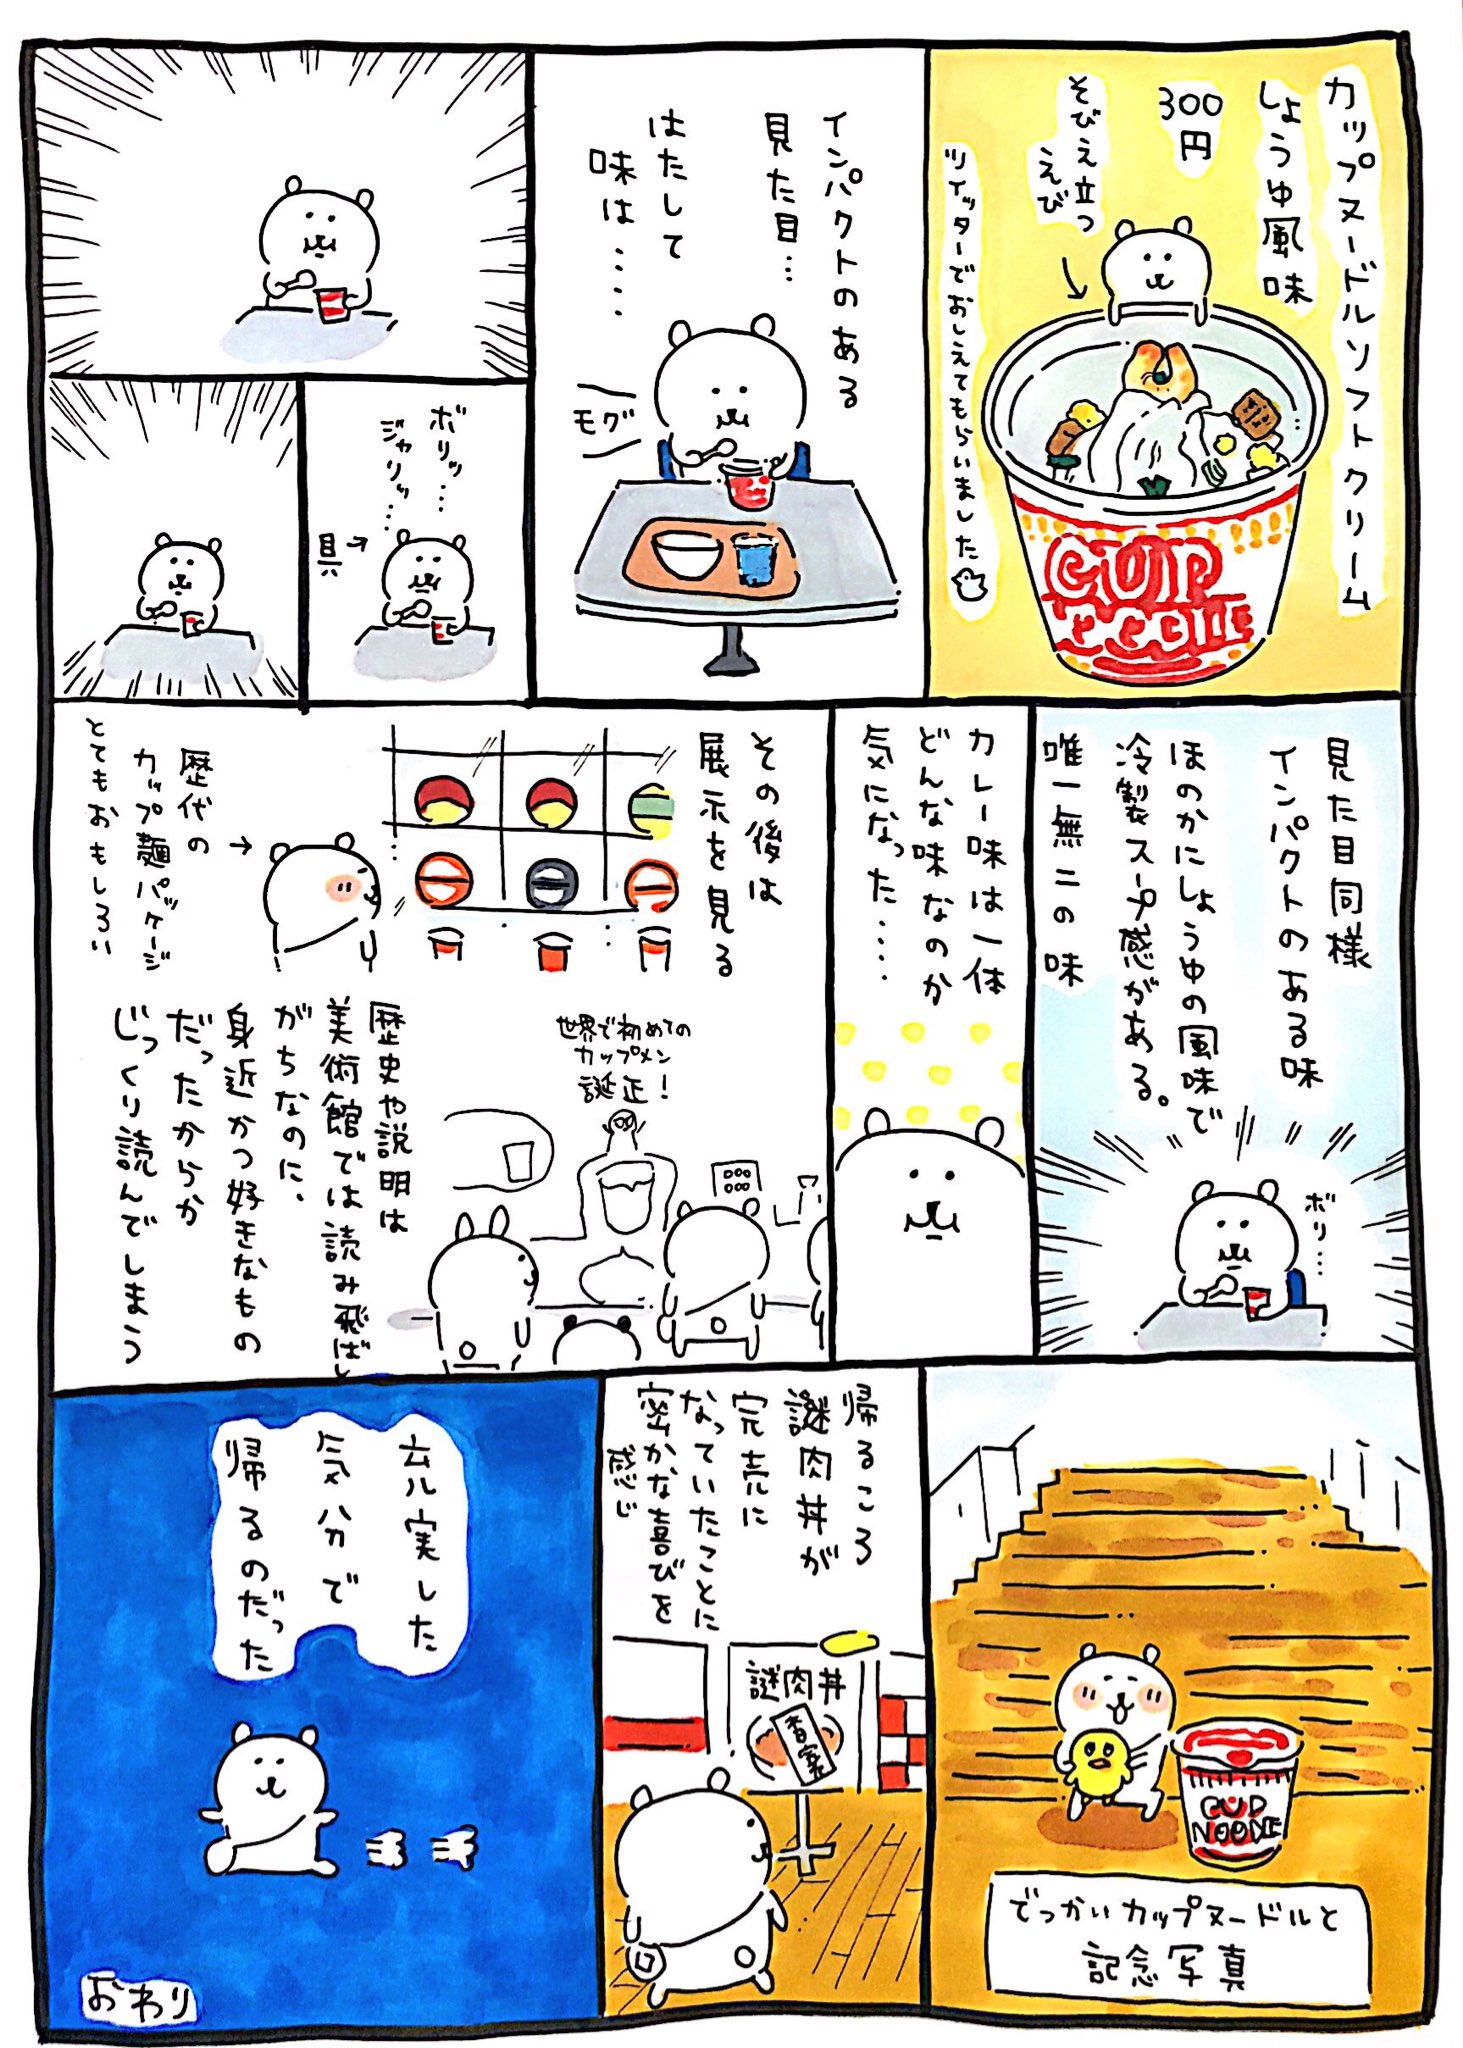 カップヌードルソフトクリーム
しょうゆ風味
300
円
そびえ立つ
えび
ツイッターでおしえてもらいました
CUP
NOODLE
インパクトのある
見た目…
はたして
味は……
モグ
ボリッ…
ジャリッ…
具→
見た目同様
インパクトのある味
ほのかにしょうゆの風味で
冷製スープ感がある。
唯一無二の味
ボリ…
カレー味は一体
どんな味なのか
気になった……
その後は
展示を見る
歴代の
カップ麺パッケージ
とてもおもしろい
世界で初めての
カップメン
誕正!
歴史や説明は
美術館では読み飛ばし
がちなのに、
身近かつ好きなもの
だったからか
じっくり読んでしまう
CUP
NOODLE
でっかいカップヌードルと
記念写真
帰るころ
謎肉丼が
完売に
なっていたことに
密かな喜びを
感じ
謎肉丼
充実した
気分で
帰るのだった
おわり